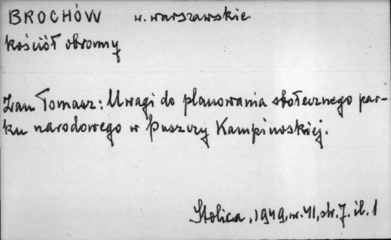 BROCHÓW w. warszawskie
kościół obronny
Zan Tomasz: Uwagi do planowania społecznego par-
ku narodowego w Puszczy Kampinoskiej.
Stolica, 1949, nr. 41, str. 7. il. 1